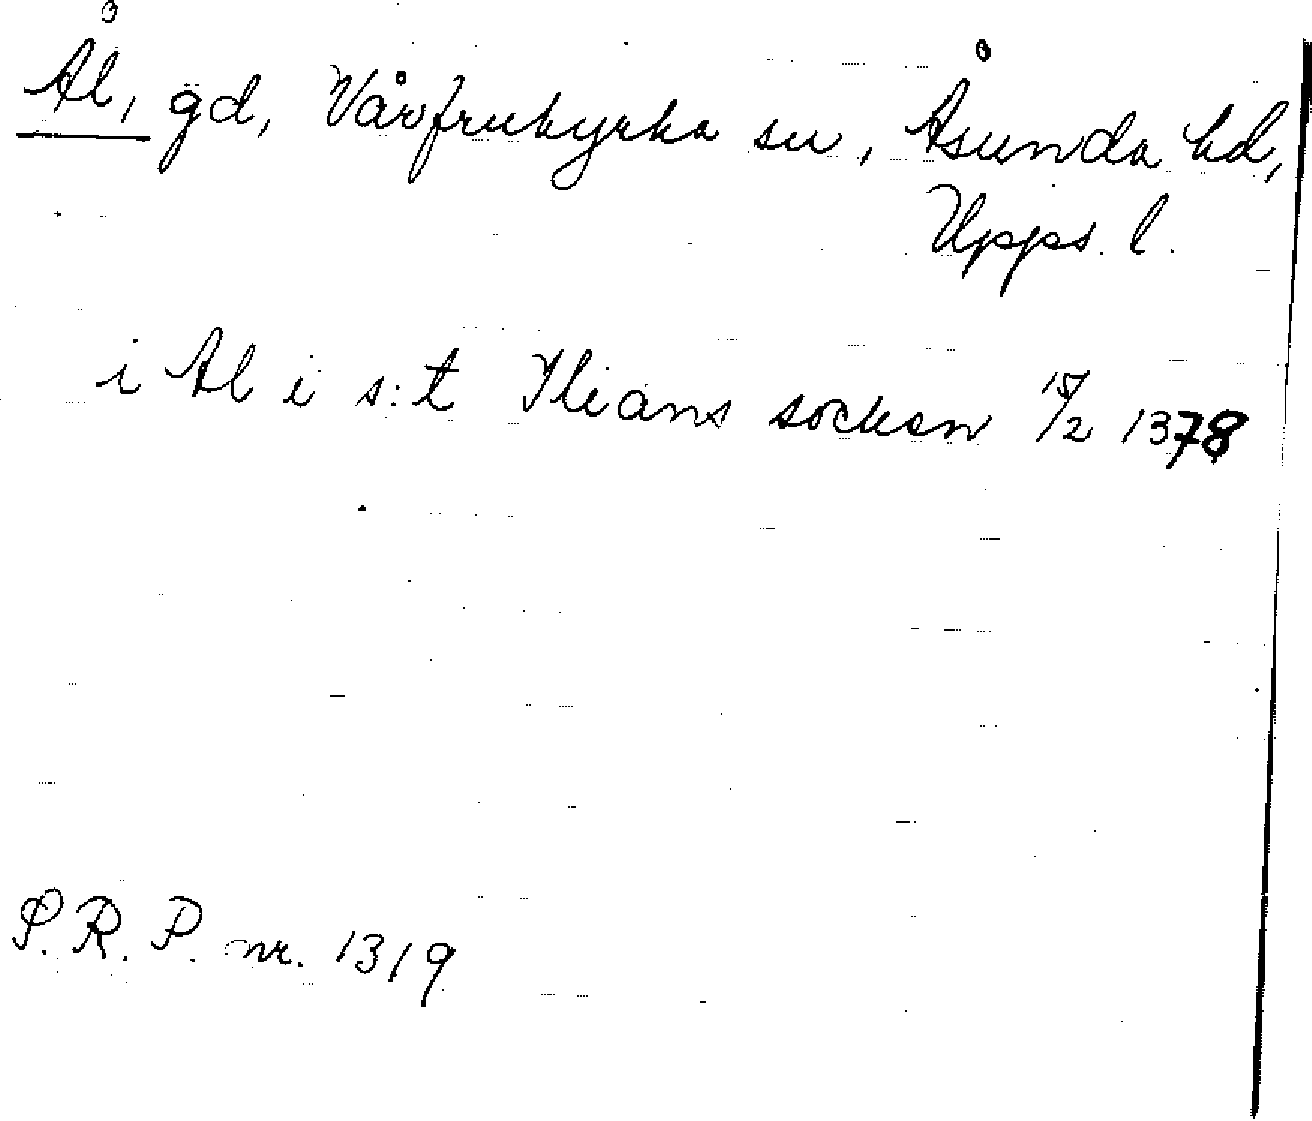 Ål, gd, Vårfrukyrka sn, Åsunda hd,
Upps. l.
i Al i s:t Ilians socken 15/2 1378
S.R.P. nr. 1319